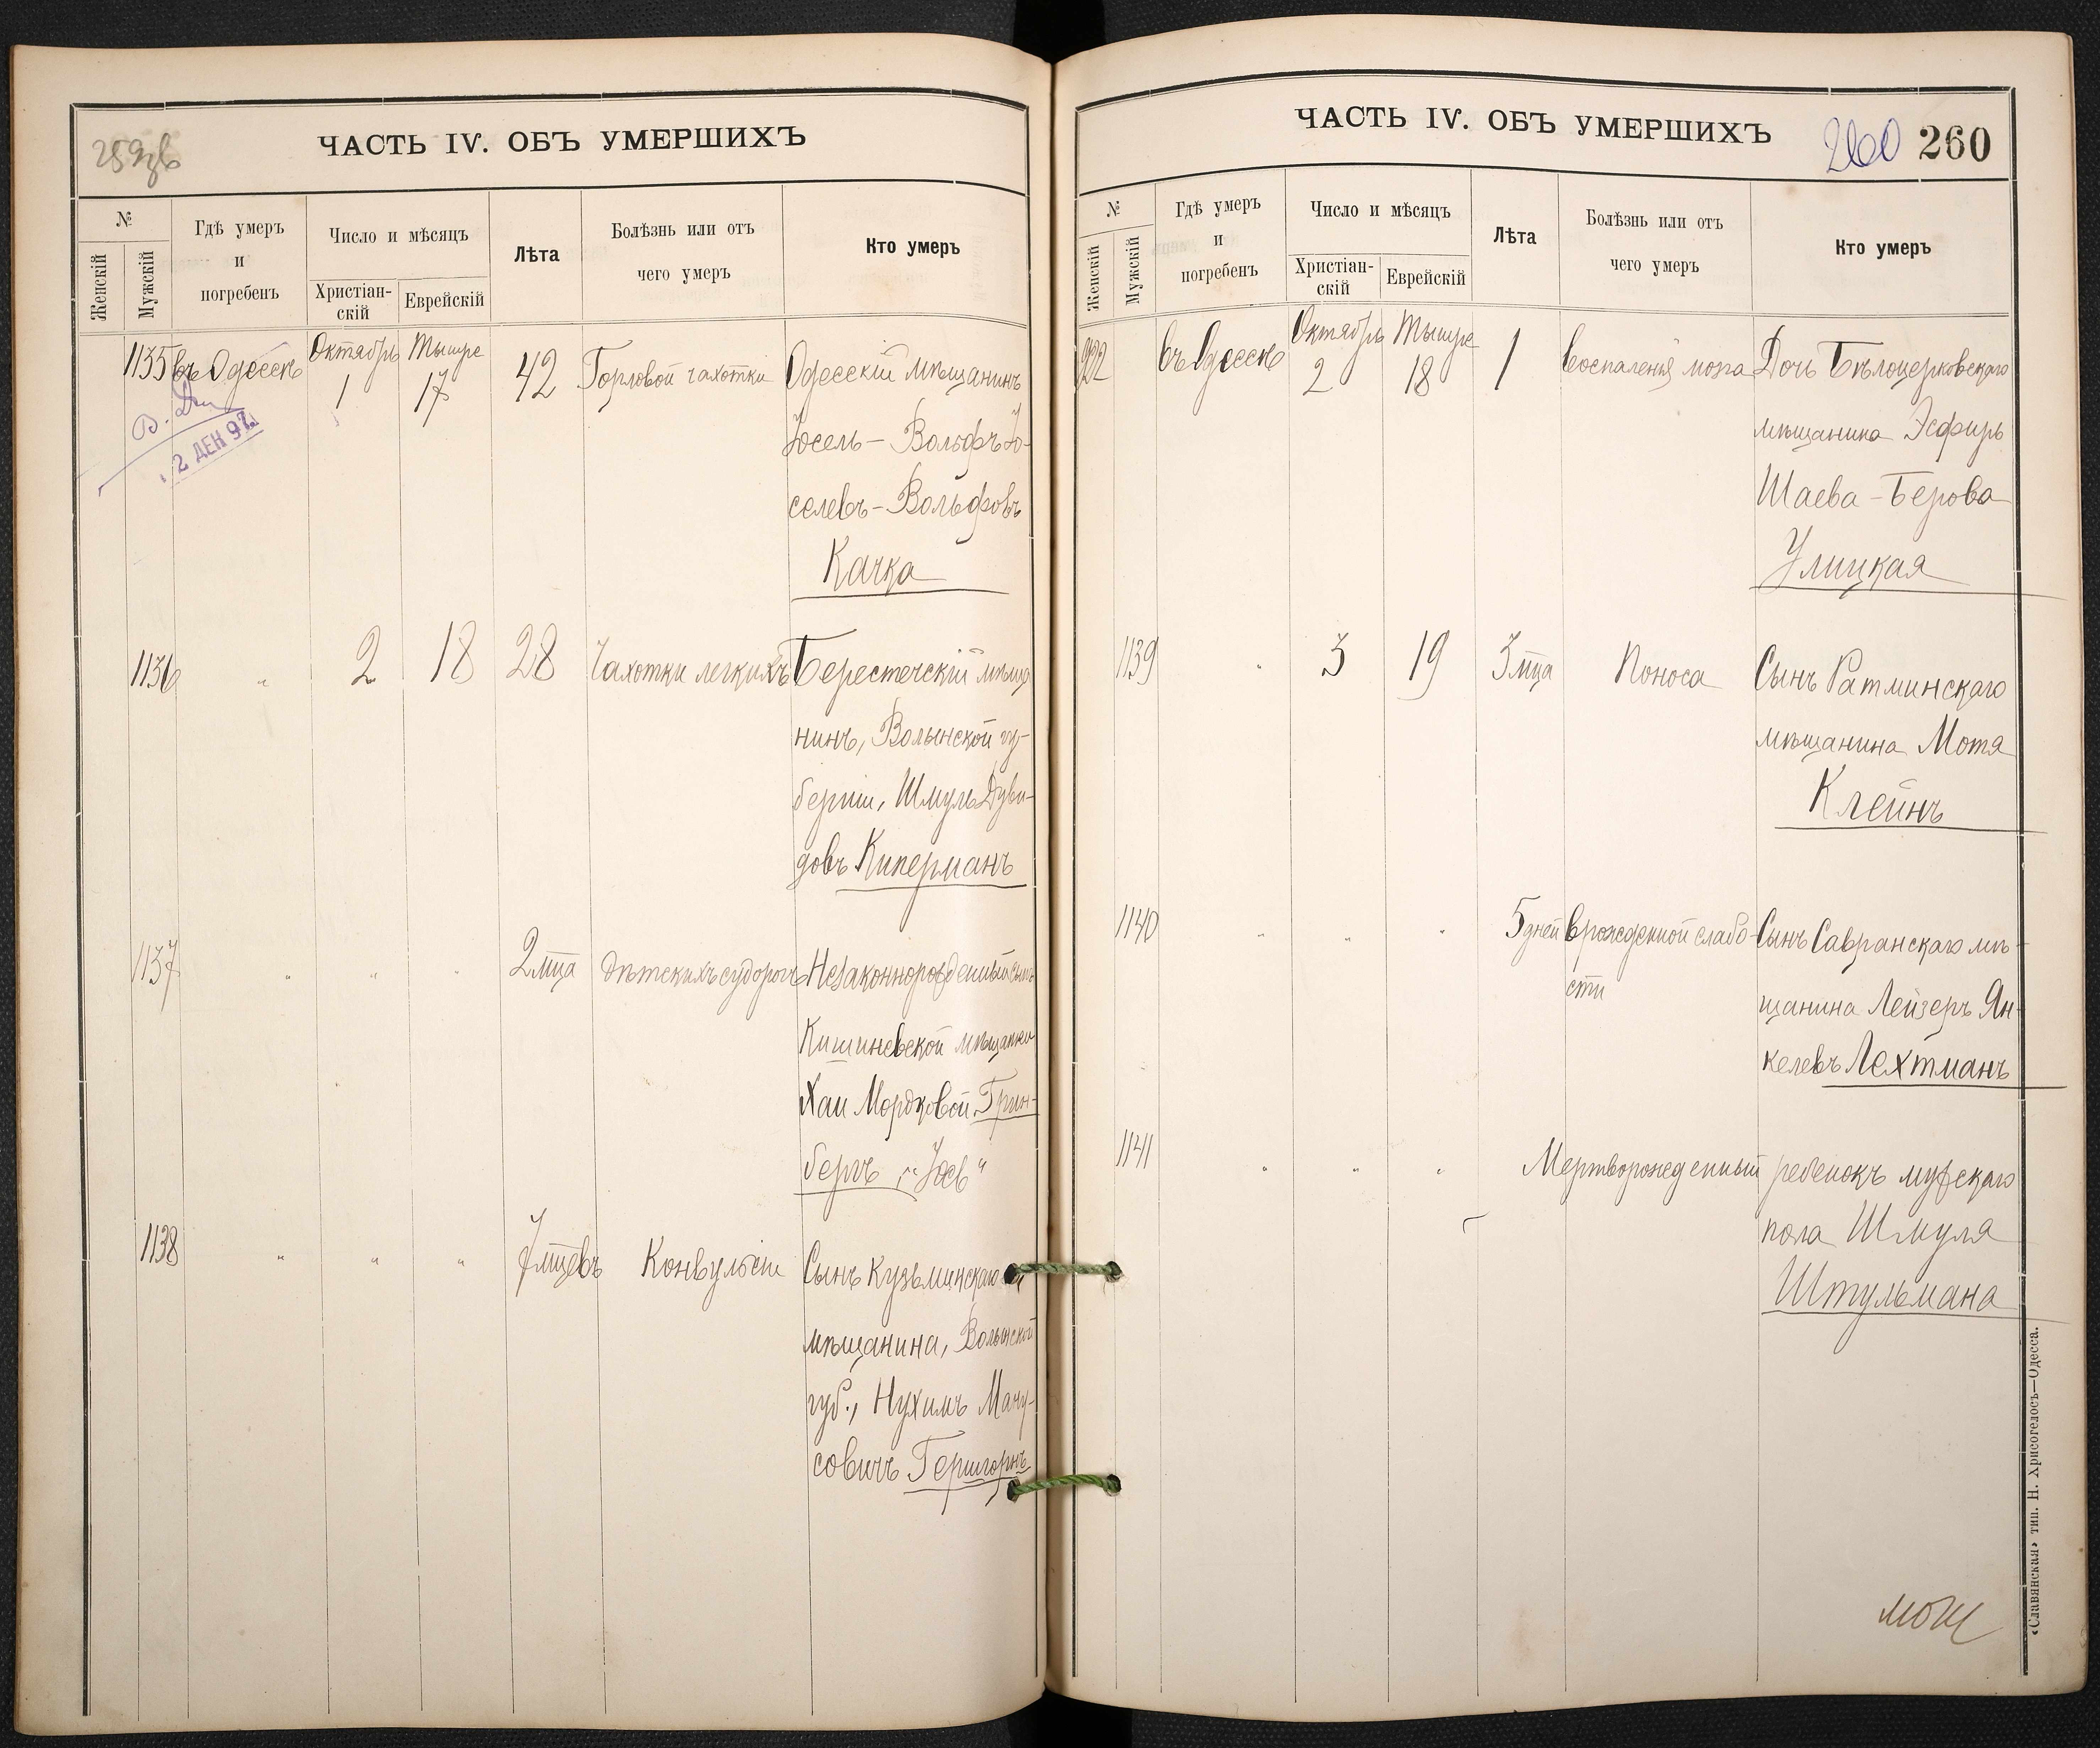 259об
ЧАСТЬ IV. ОБЪ УМЕРШИХЪ
№
Женскій
Мужскій
Гдѣ умеръ
и
погребенъ
Число и мѣсяцъ
Христіан-
скій
Еврейскій
Лѣта
Болѣзнь или отъ
чего умеръ
Кто умеръ
1135 въ Одессѣ Октябрь 1 Тышре 17 42 Горловой чахотки Одесскій мѣщанинъ
Іосель-Вольфъ Іо-
селевъ-Вольфовъ
Качка
2 ДЕК 97
1136 " 2 18 28 Чахотки легкихъ Берестечскій мѣща
нинъ, Волынской гу-
берніи, Шмуль Дуви-
довъ Киперманъ
1137 " " " 2 мца Дѣтскихъ судорогъ Незаконнорожденный сынъ
Кишиневской мѣщанки
Хаи Мордковой Грин-
бергъ, "Іосъ"
1138 " " " 7 мцевъ Конвульсіи Сынъ Кузьминскаго
мѣщанина, Волынской
губ., Нухимъ Ману-
совичъ Гершгорнъ
ЧАСТЬ IV. ОБЪ УМЕРШИХЪ
260 260
№
Женскій
Мужскій
Гдѣ умеръ
и
погребенъ
Число и мѣсяцъ
Христіан-
скій
Еврейскій
Лѣта
Болѣзнь или отъ
чего умеръ
Кто умеръ
922 въ Одессѣ Октябрь 2 Тышре 18 1 Воспаленія мозга Дочь Бѣлоцерковскаго
мѣщанина Эсфирь
Шаева-Берова
Улицкая
1139 " 3 19 3 мца Поноса Сынъ Ратминскаго
мѣщанина Мотя
Клейнъ
1140 " " " 5 дней Врожденной слабо- Сынъ Савранскаго мѣ-
сти
щанина Лейзеръ Ян-
келевъ Лехтманъ
1141 " " " Мертворожденный ребенокъ мужскаго
пола Шмуля
Штульмана
«Славянская» тип. Н. Хрисогелосъ—Одесса.